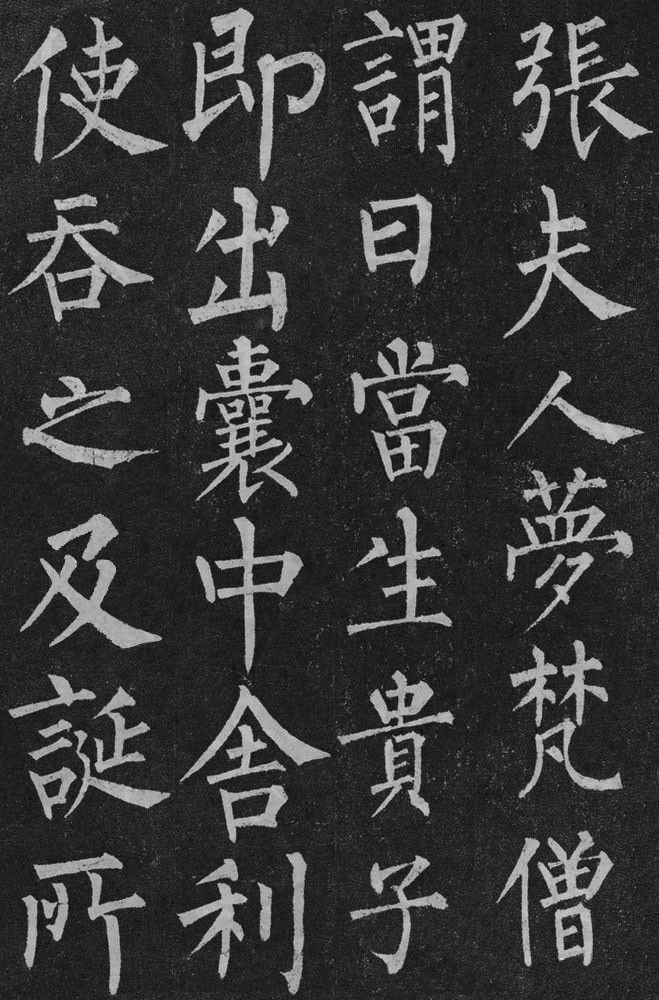 張夫人夢梵僧
謂曰當生貴子
即出囊中舍利
使吞之及誕所